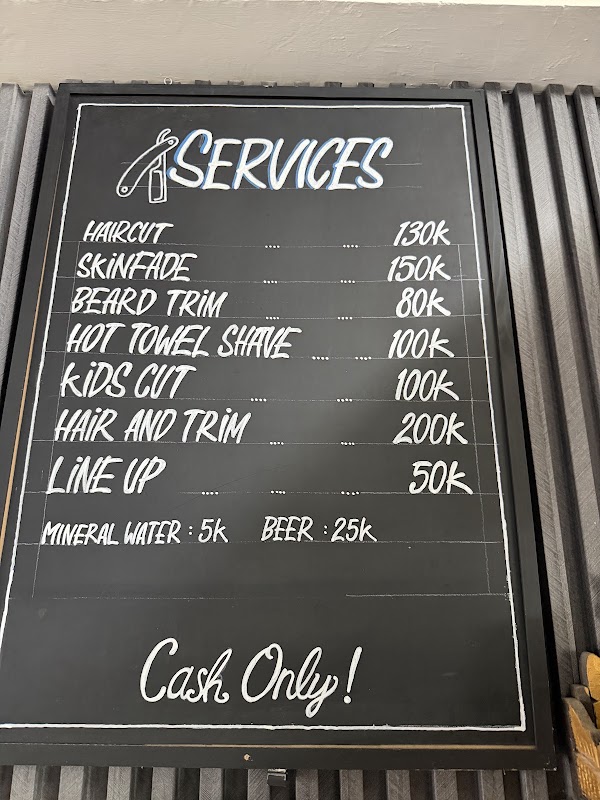 SERVICES
HAIRCUT .... .... 130K
SKINFADE .... .... 150K
BEARD TRIM .... .... 80K
HOT TOWEL SHAVE .... .... 100K
KiDS CUT .... .... 100K
HAiR AND TRiM .... .... 200K
LiNE UP .... .... .... 50K
MINERAL WATER : 5K BEER : 25K
Cash Only!